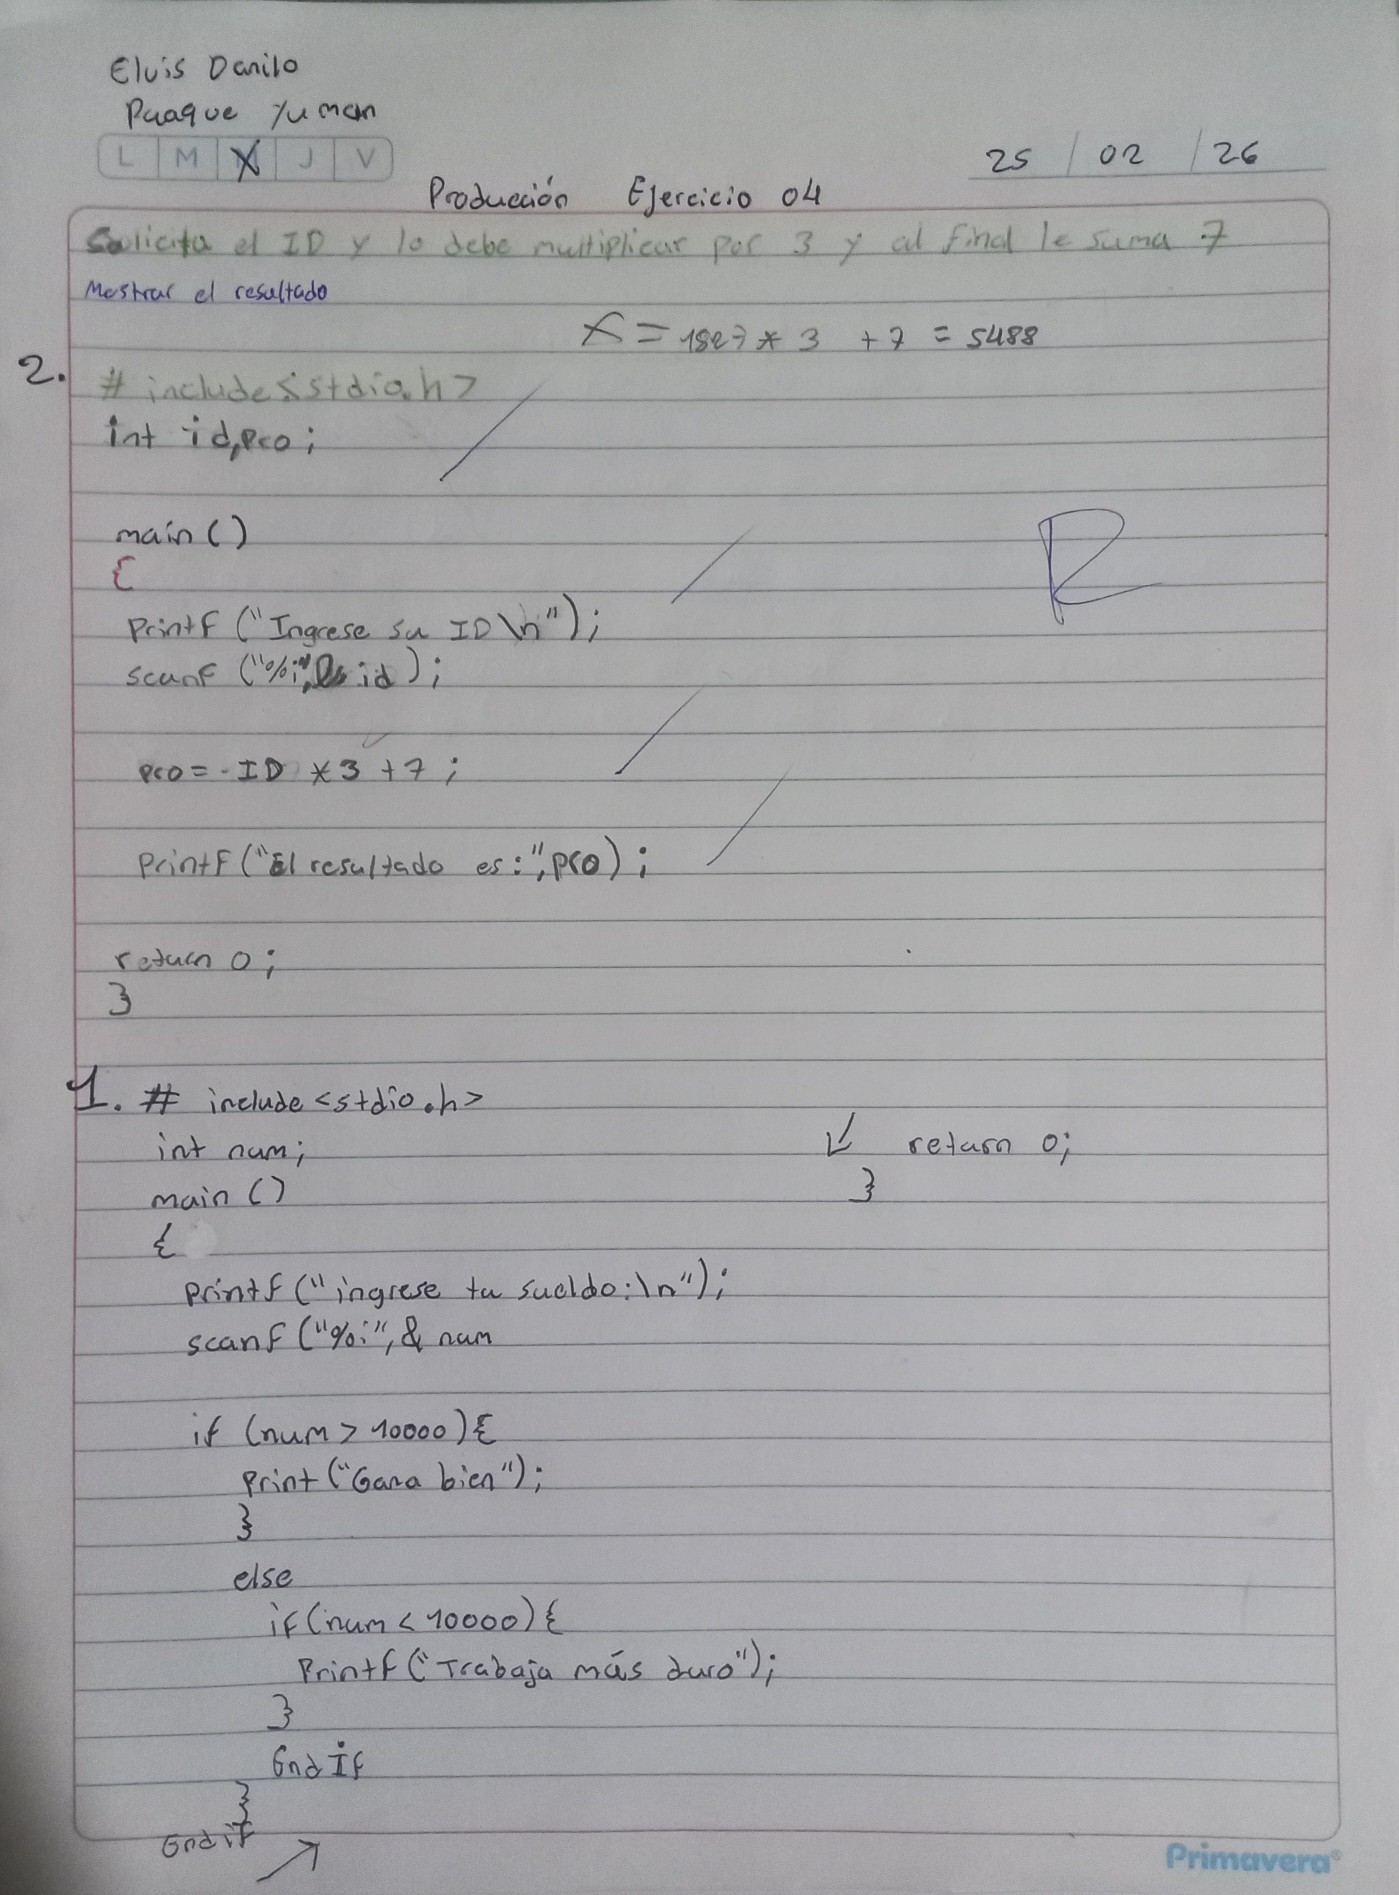 Elvis Danilo
Puaque Yuman
L M X J V
25 / 02 / 26
Producción Ejercicio 04
Solicita el ID y lo debe multiplicar por 3 y al final le suma 7
Mostrar el resultado
X = 1827 * 3 + 7 = 5488
2. # include <stdio.h>
int id,pro;
main ()
{
printf ("Ingrese su ID \n");
scanf ("%i", & id);
pro = ID * 3 + 7 ;
printf ("El resultado es:",pro) ;
return 0;
}
1. # include <stdio.h>
int num;
main ()
{
printf ("ingrese tu sueldo:\n");
scanf ("%i", & num
if (num > 10000) {
print ("Gana bien");
}
else
if (num < 10000) {
Printf ("Trabaja más duro");
}
End If
}
End if
return 0;
}
Primavera®